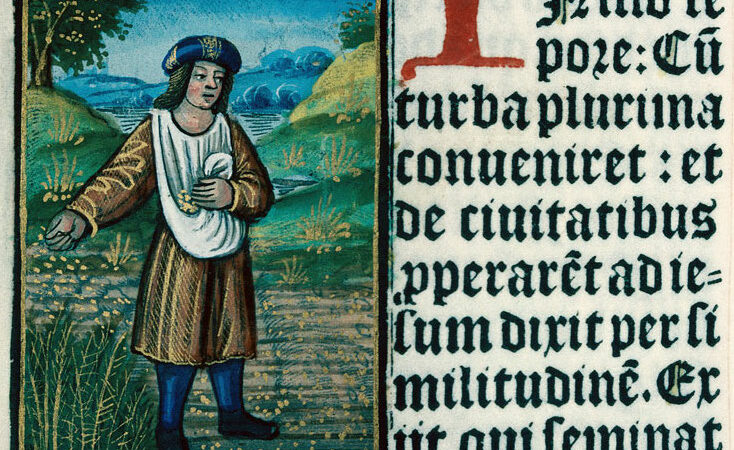 IN illo te
pore: Cū
turba plurima
conueniret : et
de ciuitatibus
ꝓperarēt ad ie=
sum dixit per si
militudinē. Ex
ijt qui seminat